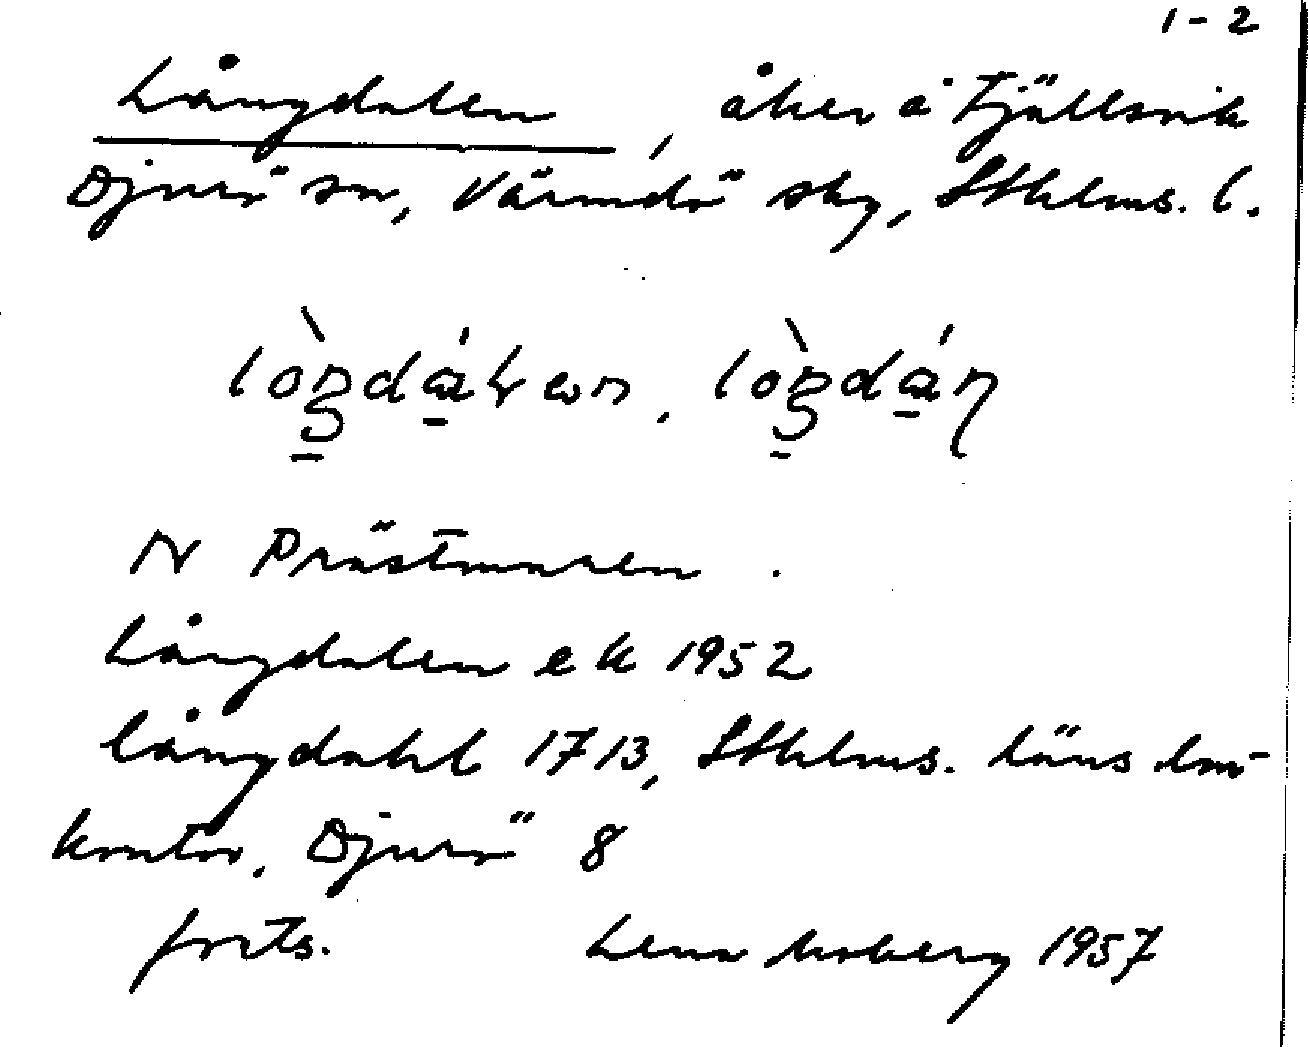 1-2
Långdalen, åker å Fjällsvik
Djurö sn, Värmdö skg, Sthlms. l.
lòŋdálen, lòŋdáṇ
N Prästmaren.
Långdalen ek 1952
långdahl 1713, Sthlms. läns lm-
kontor, Djurö 8
forts. Lena Moberg 1957